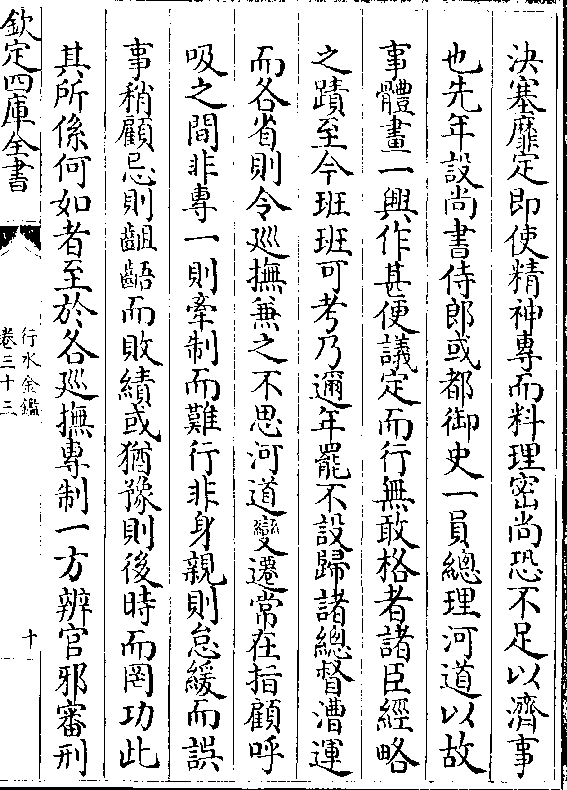 決塞靡定即使精神專而料理密尚恐不足以濟事
也先年設尚書侍郎或都御史一員總理河道以故
事體畫一興作甚便議定而行無敢格者諸臣經略
之蹟至今班班可考乃邇年罷不設歸諸總督漕運
而各省則令廵撫兼之不思河道變遷常在指顧呼
吸之間非專一則牽制而難行非身親則怠緩而誤
事稍顧忌則齟齬而敗績或猶豫則後時而罔功此
其所係何如者至於各廵撫專制一方辨官邪審刑
欽定四庫全書
行水金鑑
卷三十三
十